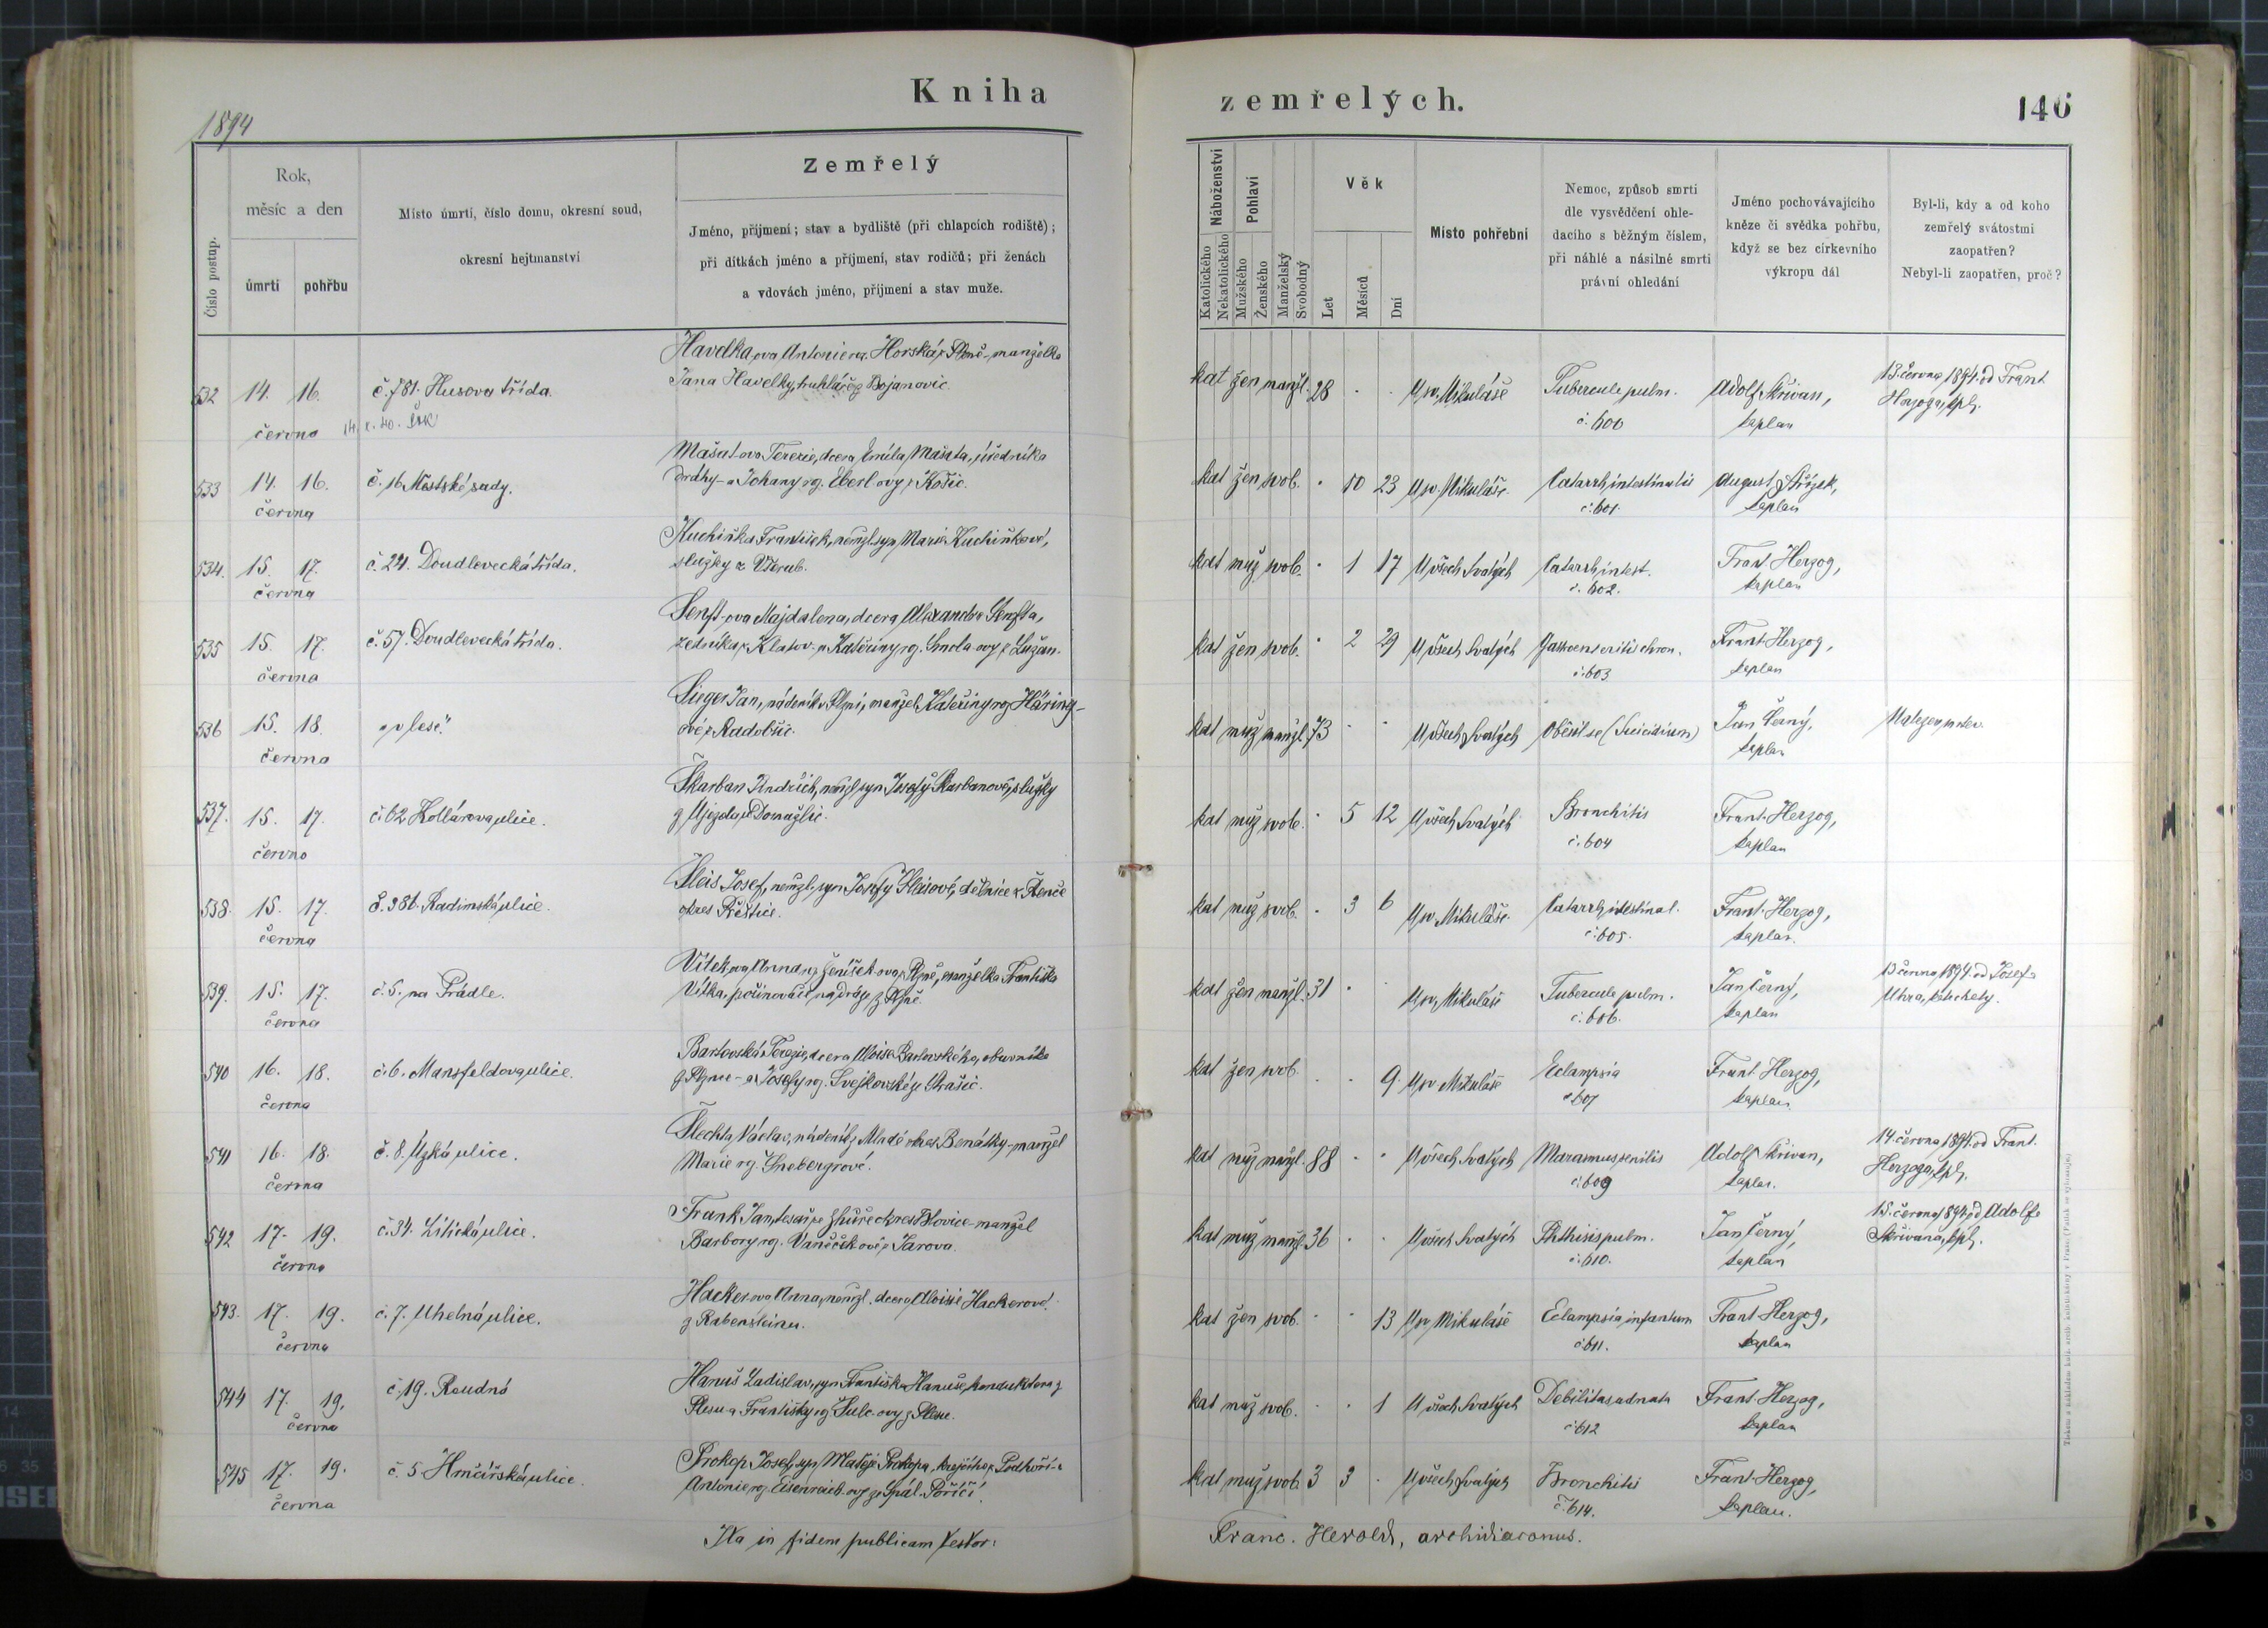 Kniha
zemřelých.
146
1894
Číslo postup.
Rok,
měsíc a den
úmrtí
pohřbu
Místo úmrtí, číslo domu, okresní soud,
okresní hejtmanství
Zemřelý
Jméno, příjmení; stav a bydliště (při chlapcích rodiště);
při dítkách jméno a příjmení, stav rodičů; při ženách
a vdovách jméno, příjmení a stav muže.
Náboženství
Katolického
Nekatolického
Pohlaví
Mužského
Ženského
Manželský
Svobodný
Věk
Let
Měsíců
Dní
Místo pohřební
Nemoc, způsob smrti
dle vysvědčení ohle-
dacího s běžným číslem,
při náhlé a násilné smrti
právní ohledání
Jméno pochovávajícího
kněze či svědka pohřbu,
když se bez církevního
výkropu dál
Byl-li, kdy a od koho
zemřelý svátostmi
zaopatřen?
Nebyl-li zaopatřen, proč?
Havelka ova Antonie roz. Horská z Plzně, manželka
532 14. 16. č. 781. Husova třída. Jana Havelky, truhláře z Bojanovic.
června
kat žen manžl. 28 U sv. Mikuláše Tubercule pulm. Adolf Skřivan, 13. června 1894 od Frant.
č. 600 kaplan Herzoga, kpl.
Mašat-ova Terezie, dcera Emila Mašata, úředníka
533 14. 16. č. 16 Městské sady. dráhy a Johany rg. Eberl-ovy z Košic.
června
kat žen svob. 10 23 U sv. Mikuláše. Catarrh intestinalis August Střízek,
č. 601. kaplan
Kuchiňka František, nemžl. syn Marie Kuchiňkové,
534. 15. 17. č. 24. Doudlevecká třída. služky z Všerub.
června
kat muž svob. 1 17 U všech Svatých Catarrh intest. Frant. Herzog,
č. 602. kaplan
Senft-ova Majdalena, dcera Alexandra Senfta,
535 15. 17. č. 57. Doudlevecká třída. zedníka z Klatov a Kateřiny rg. Smola-ovy z Lužan.
června
kat žen svob. 2 29 U všech Svatých Gastroenteritis chron. Frant. Herzog,
č. 603 kaplan
Sieger Jan, nádeník v Plzni, manžel Kateřiny rg. Häring-
536 15. 18. „v lese." ové z Radobčic.
června
kat muž manžl. 73 U všech Svatých Oběsil se (Suicidium) Jan Černý,
kaplan
Škarban Jindřich, nemžl. syn Josefy Škarbanové, služky
537. 15. 17. č. 62 Kollárova ulice. z Újezda u Domažlic.
června
kat muž svob. 5 12 U všech Svatých Bronchitis Frant. Herzog,
č. 604 kaplan
Josef, nemžl. syn Josefy
538. 15. 17. č. 386. Radimská ulice. okres Přeštice.
června
kat muž svob. 3 6 U sv. Mikuláše. Catarrh intestinal. Frant. Herzog,
č. 605. kaplan.
Vítek ova Anna rg. Jeníšek-ova z Plzně, manželka Františka
539. 15. 17. č. 5. na Prádle. Vítka, posunovače na dráze z Plzně.
června
kat žen manžl. 31 U sv. Mikuláše Tubercule pulm. Jan Černý, 13 června 1894 od Josefa
č. 606. kaplan Uhra,
Bartovská Terezie, dcera Aloisa Bartovského, obuvníka
540 16. 18. č. 6. Mansfeldova ulice. z Plzně a Josefy rg. Svejkovské z Strašic.
června
kat žen svob. 9. U sv. Mikuláše Eclampsia Frant. Herzog,
č. 607 kaplan
Šlechta Václav, nádeník z Mladé okres Benátky, manžel
541 16. 18. č. 8. Úzká ulice. Marie rg. Šnebergrové.
června
kat muž manžl. 88 U všech Svatých Marasmus senilis Adolf Skřivan, 14. června 1894 od Frant.
č. 609 kaplan. Herzoga, kpl.
Frank Jan, tesař ze Zhůře okres Blovice, manžel
542 17. 19. č. 34. Litická ulice. Barbory rg. Vaněčkové z Jarova.
června
kat muž manžl. 36 U všech Svatých Phthisis pulm. Jan Černý, 15. června 1894 od Adolfa
č. 610. kaplan Skřivana, kpl.
Hacker ova Anna, nemžl. dcera Aloisie Hackerové
543. 17. 19. č. 7. Uhelná ulice. z Rabensteinu.
června
kat žen svob. 13 U sv. Mikuláše Eclampsia infantum Frant. Herzog,
č. 611. kaplan
Hanuš Ladislav, syn Františka Hanuše, konduktora z
544 17. 19. č. 19. Roudná Plesu a Františky rg. Šulc-ovy z Plesu.
června
kat muž svob. 1 U všech Svatých Debilitas adnata Frant. Herzog,
č. 612 kaplan
Prokop Josef, syn Matěje Prokopa, krejčího z Podhoří a
545 17. 19. č. 5 Hrnčířská ulice. Antonie rg. Eisenreich-ovy ze Spál. Poříčí.
června
kat muž svob. 3 3 U všech Svatých Bronchitis Frant. Herzog,
č. 614. kaplan.
Ita in fidem publicam testor:
Franc. Herold, archidiaconus.